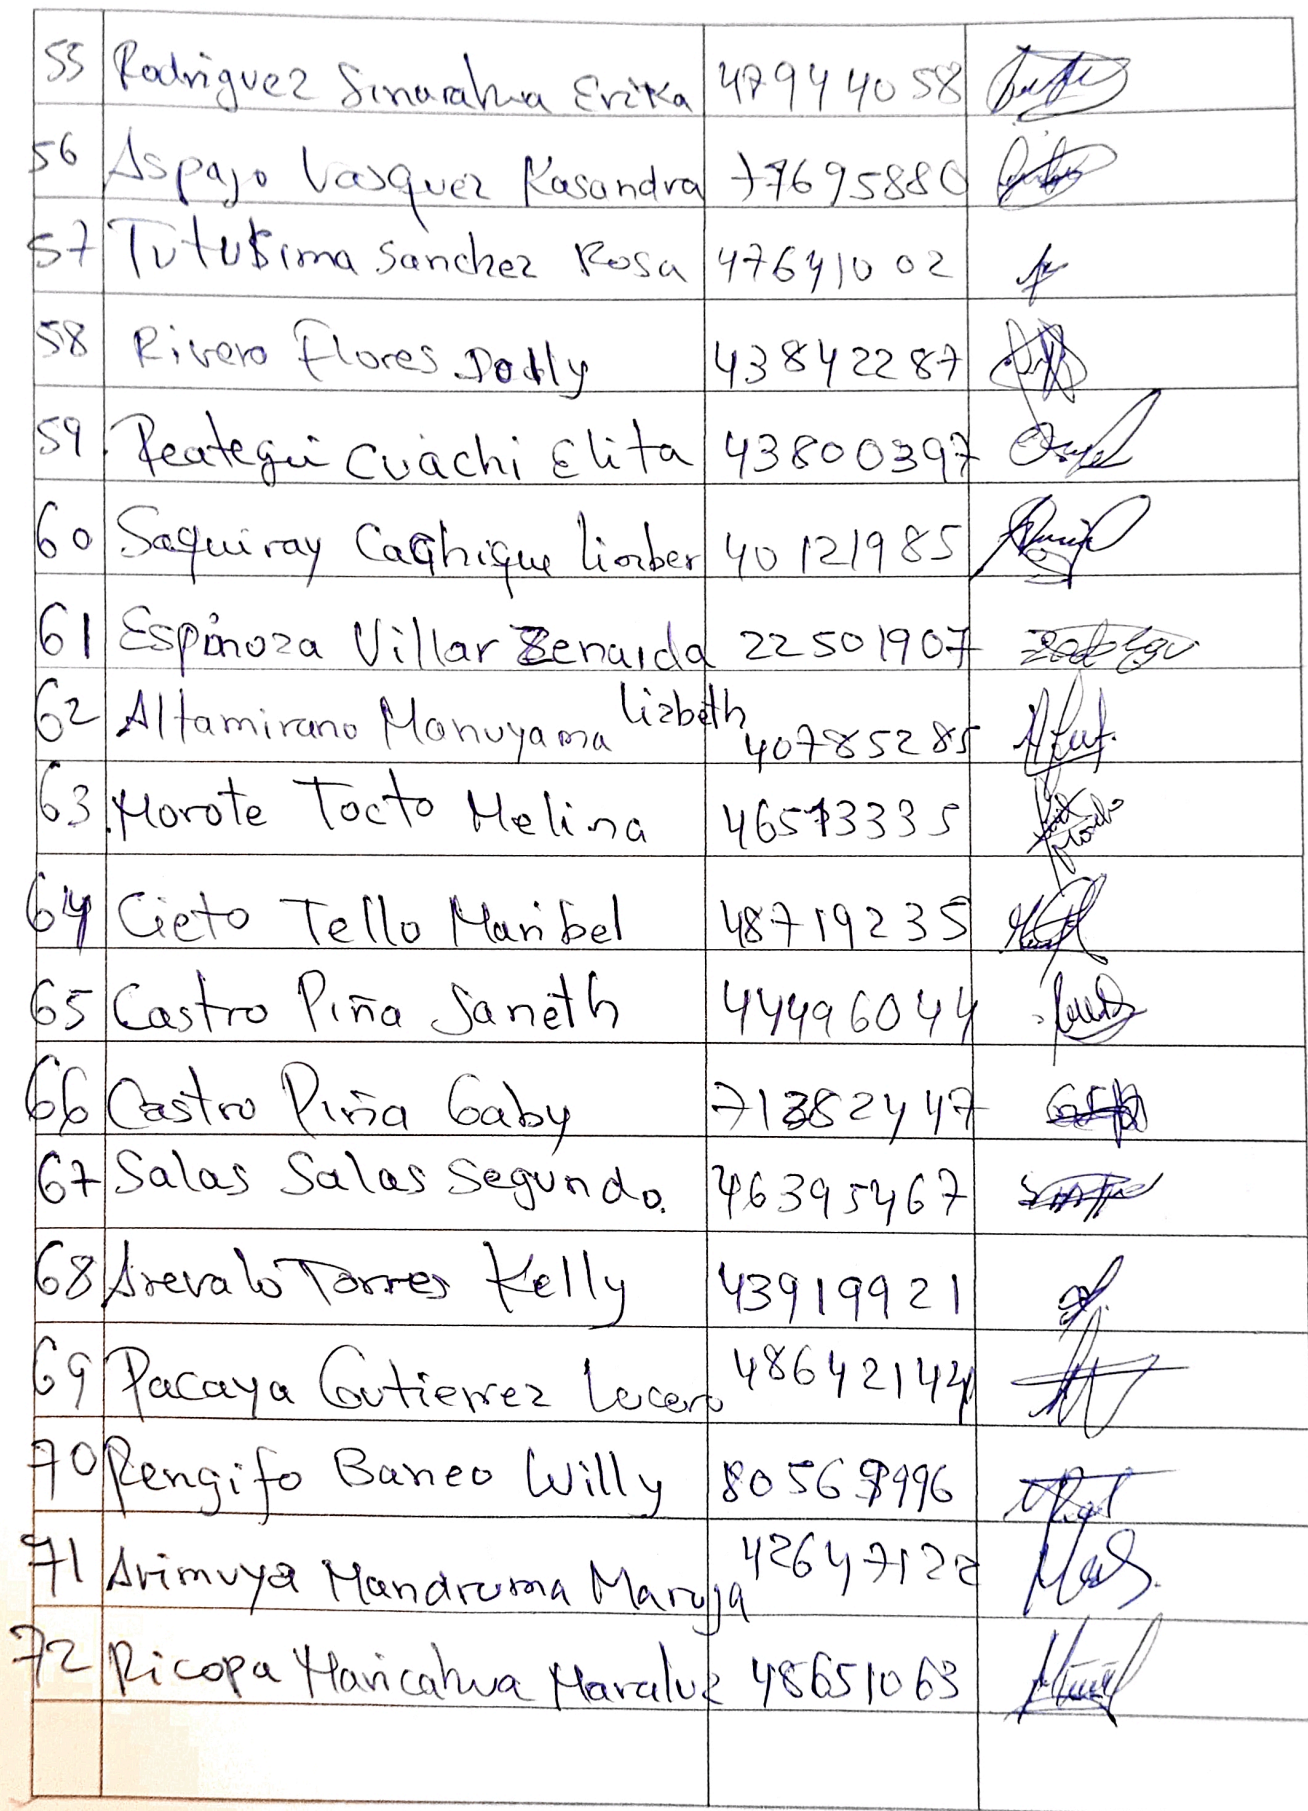 55 Rodriguez Sinarahua Erika 47944058
56 Aspajo Vasquez Kasandra 77695880
57 Tutusima Sanchez Rosa 47641002
58 Rivero Flores Dolly 43842287
59. Reategui Cuachi Elita 43800397
60 Saquiray Cachique limber 40121985
61 Espinoza Villar Zenaida 22501907
62 Altamirano Manuyama lizbeth 40785285
63. Morote Tocto Melina 46573335
64 Cieto Tello Maribel 48719235
65 Castro Piña Janeth 44496044
66 Castro Piña Gaby 71382447
67 Salas Salas Segundo. 46395467
68 Arevalo Torres Kelly 43919921
69 Pacaya Gutierrez Lucero 48642144
70 Rengifo Baneo Willy
71 Arimuya Mandruma Maruja 42647122
72 Ricopa Maricahua Maraluz 48651063